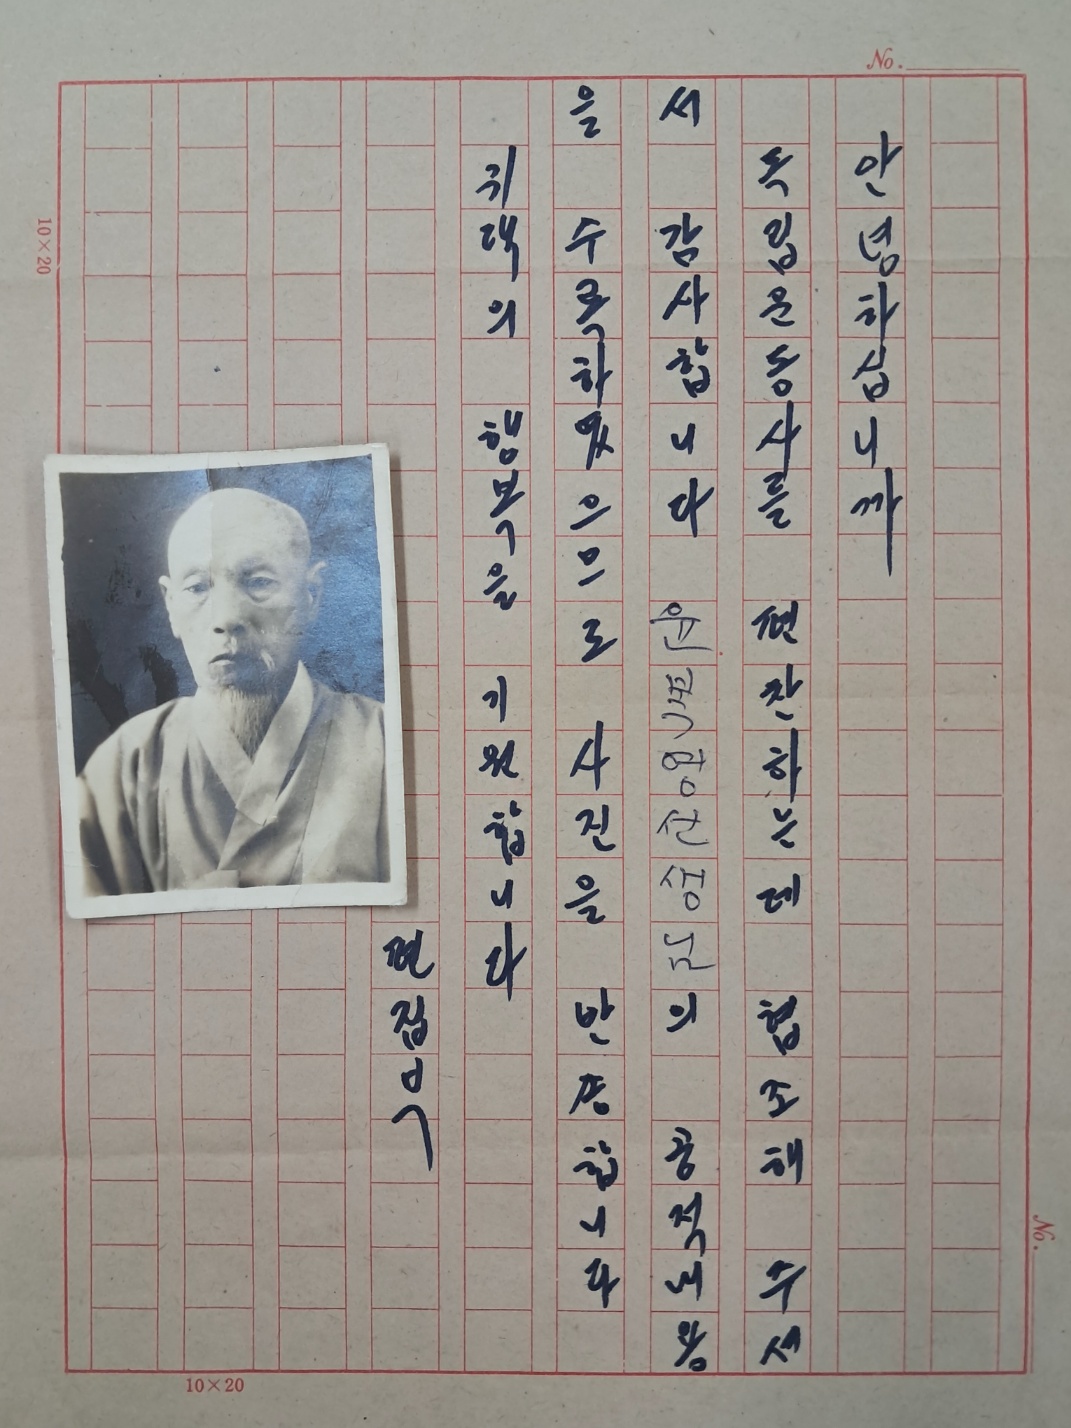 No.
안녕하십니까
독립운동사를 편찬하는데 협조해 주셔
서 감사합니다 의 공적내용
을 수록하였으므로 사진을 반송합니다
귀댁의 행복을 기원합니다
편집인
10×20
10×20
No.